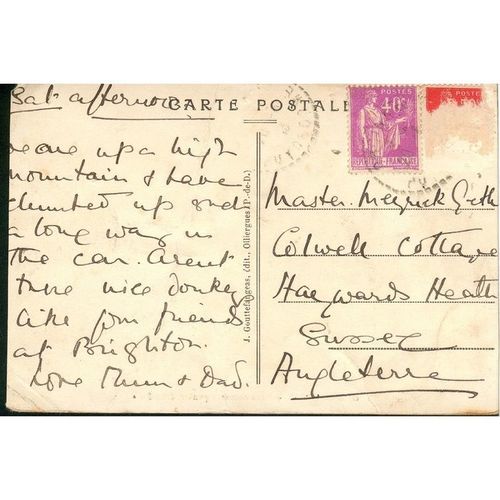 Sat afternoon
CARTE POSTALE
we are up a high
mountain & have
climbed up such
a long way in
the car. Arent
these nice donkeys
like your friends
at Brighton.
Love Mum & Dad.
J. Gouttefangeas, édit., Olliergues (P.-de-D.)
POSTES
40c
REPUBLIQUE FRANÇAISE
POSTE
50c
Master. Meyrick
Colwell Cottage
Haywards Heath
Sussex
Angleterre